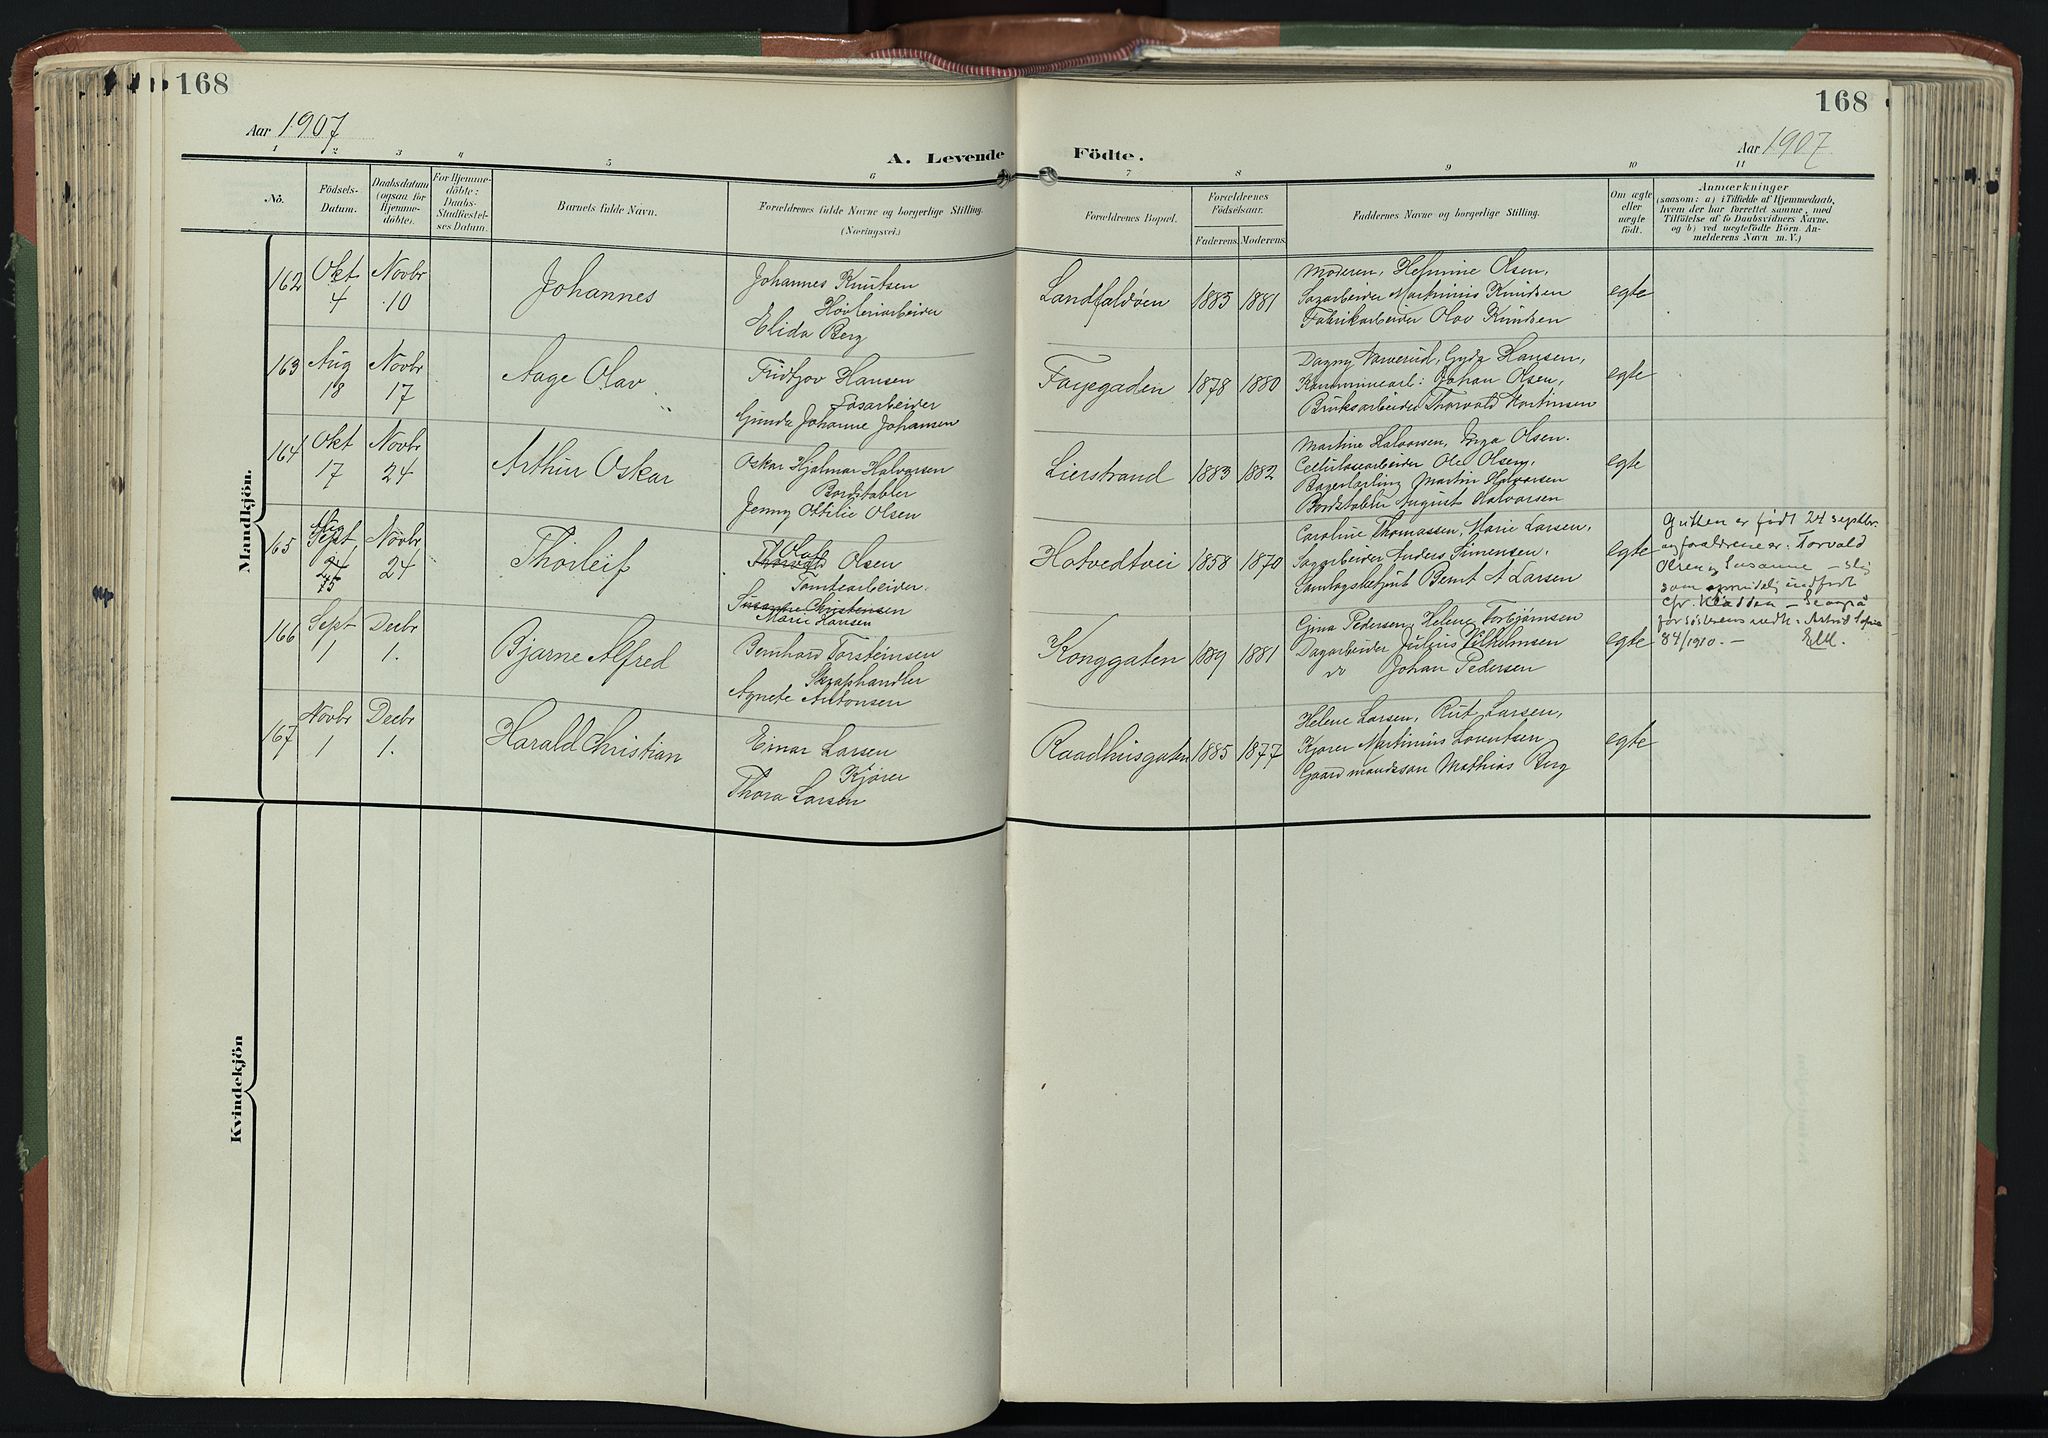 168
Aar 1907
A. Levende
1 2 3 4 5 6
No.
Födsels-Datum.
Daabsdatum (ogsaa for Hjemme-döbte).
For Hjemme-döbte: Daabs-Stadfæstel-ses Datum.
Barnets fulde Navn.
Forældrenes fulde Navne og borgerlige Stilling.
(Næringsvei.)
Mandkjön.
162 Okt 4 Novbr 10 Johannes
Johannes Knutsen
Høvleriarbeider
Elida Berg
163 Aug 18 Novbr 17 Aage Olav
Fridtjov Hansen
Gunda Johanne Johansen
164 Okt 17 Novbr 24 Arthur Oskar
Oskar Hjalmar Halvorsen
Bordstabler
Jenny Ottilie Olsen
165 Aug Sept 24 Novbr 24 Thorleif
Olaf
Thorvald Olsen
Tomtearbeider.
Susanne Christensen
Marie Hansen
166 Sept 1 Decbr 1. Bjarne Alfred
Bernhard Torsteinsen
Skraphandler
Agnete Antonsen
167 Novbr 1 Decbr 1. Harald Christian
Einar Larsen
Kjører
Thora Larsen
Kvindekjön
168
Aar 1907
Födte.
7 8 9 10 11
Forældrenes Bopæl.
Forældrenes Födselsaar.
Faderens. Moderens.
Faddernes Navne og borgerlige Stilling.
Om ægte eller uægte födt.
Anmærkninger
(saasom: a) i Tilfælde af Hjemmedaab,
hvem der har forrettet samme, med
Tilföielse af to Daabsvidners Navne,
og b) ved uægtefödte Börn An-
melderens Navn m. V.)
Landfaldøen 1883 1881
Moderen, Hermine Olsen,
Sagarbeider Martinius Knudsen
Fabrikarbeider Olav Knudsen
egte
Fayegaden 1878 1880
Dagny Narverud, Gyda Hansen,
Kommunearb: Johan Olsen,
Bruksarbeider Thorvald Martinsen
egte
Lierstrand 1883 1882
Martine Halvorsen, Inga Olsen.
Cellulosearbeider Ole Olsen,
Bagerlærling Martin Halvorsen
Bordstabler August Halvorsen
egte
Hotvedtvei 1858 1870
Caroline Thomassen, Marie Larsen,
Sagarbeider Anders Simensen,
Bernt A Larsen
egte
Gutten er født 24 septbr.
og forældrene er: Torvald
Olsen og Susanne – slig
som oprindelig indført
cfr. Kladden –
84/1910. –
Konggaten 1889 1881
Gina Pedersen, Helene Torbjørnsen
Dagarbeider Julius Vilhelmsen
do Johan Pedersen
egte
Raadhusgaten 1885 1877
Helene Larsen, Rut Larsen,
Kjører Martinius Lorentsen
Gaardmandssøn Mathias Berg
egte